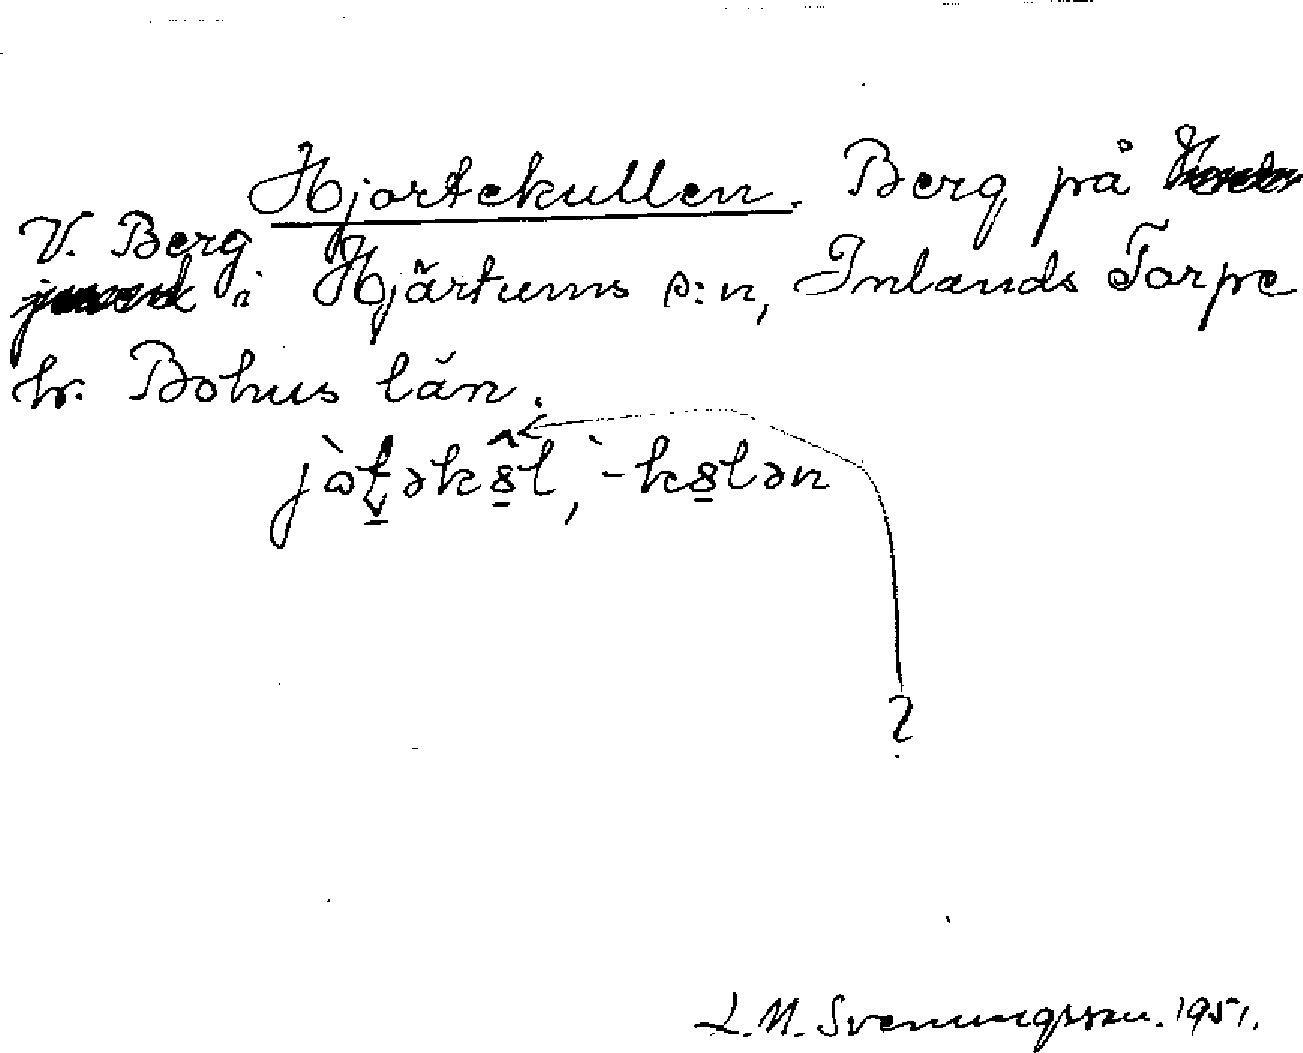 Hjortekullen. Berg på
V. Berg
i Hjärtums s:n, Inlands Torpe
hr. Bohus län.
?
L. M. Svenungsson. 1951.